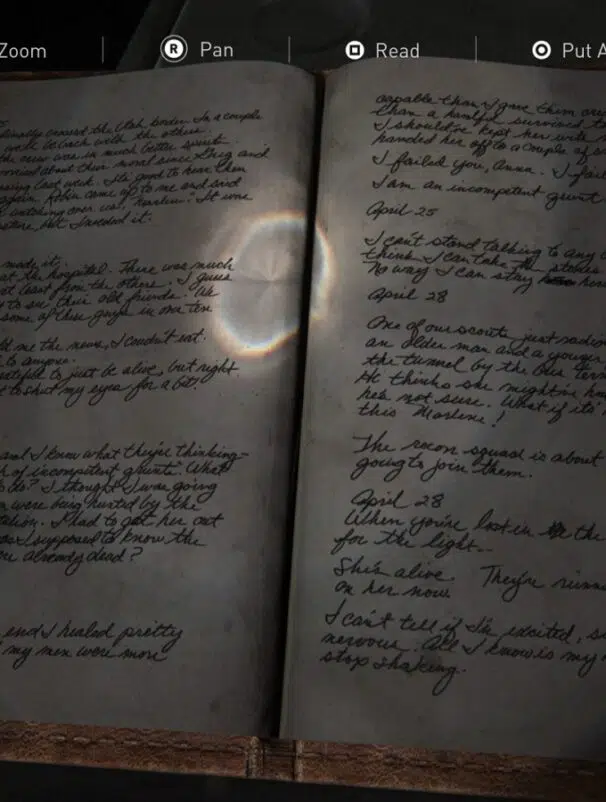 Zoom
R Pan
Read
Put A
finally crossed the Utah border. In a couple
we'll be back with the others.
the crew was in much better spirits.
worried about their moral since Greg and
last week. It's good to hear them
again. Robin came up to me and said
watching over us, Marlene." It wore
but I needed it.
made it.
the hospital. There was much
at least from the others. I guess
to see their old friends. We
some of these guys in over ten
told me the news, I couldn't eat.
to anyone.
grateful to just be alive, but right
t to shut my eyes for a bit.
and I know what they're thinking-
h of incompetent grunts. What
do? I thought I was going
were being hunted by the
I had to get her out
was I supposed to know the
already dead?
end I healed pretty
my men were more
capable than I gave them
than a handful survived
I should've kept her with
handed her off to a couple of
I failed you, Anna. I fail
I am an incompetent grunt
April 25
I can't stand talking to any
think I can take the stares
No way I can stay here
April 28
One of our scouts just radio
an older man and a younger
the tunnel by the bus term
He thinks she might've
he's not sure. What if it's
this Marlene!
The recon squad is about
going to join them.
April 28
When you're lost in the
for the light..
She's alive. They're runn
on her now.
I can't tell if I'm excited, s
nervous. All I know is my
stop shaking.